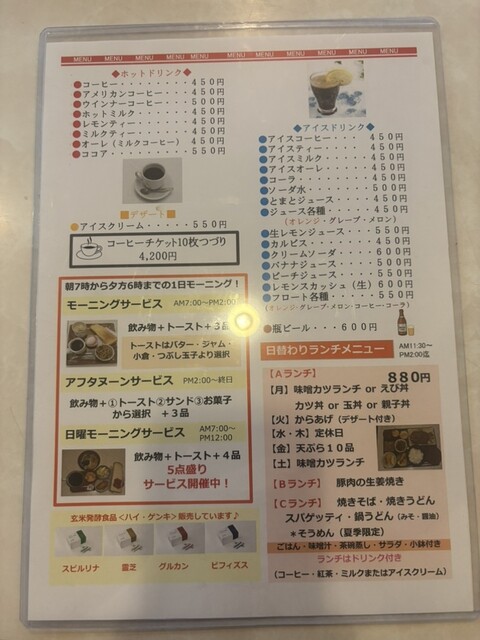 MENU MENU MENU MENU MENU MENU MENU MENU MENU MENU
◆ホットドリンク◆
●コーヒー・・・・・・・450円
●アメリカンコーヒー・・・450円
●ウインナーコーヒー・・・500円
●ホットミルク・・・・・450円
●レモンティー・・・・・450円
●ミルクティー・・・・・450円
●オーレ(ミルクコーヒー) 450円
●ココア・・・・・・・・550円
■デザート■
●アイスクリーム・・・・・550円
コーヒーチケット10枚つづり
4,200円
◆アイスドリンク◆
●アイスコーヒー・・・450円
●アイスティー・・・・450円
●アイスミルク・・・・450円
●アイスオーレ・・・・450円
●コーラ・・・・・・・450円
●ソーダ水・・・・・・500円
●とまとジュース・・・450円
●ジュース各種・・・・450円
(オレンジ・グレープ・メロン)
●生レモンジュース・・550円
●カルピス・・・・・・450円
●クリームソーダ・・・600円
●バナナジュース・・・500円
●ピーチジュース・・・550円
●レモンスカッシュ(生)600円
●フロート各種・・・・550円
(オレンジ・グレープ・メロン・コーヒー・コーラ)
●瓶ビール・・・600円
朝7時から夕方6時までの1日モーニング!
モーニングサービス AM7:00〜PM2:00
飲み物+トースト+3品
トーストはバター・ジャム・
小倉・つぶし玉子より選択
アフタヌーンサービス PM2:00〜終日
飲み物+①トースト②サンド③お菓子
から選択 +3品
日曜モーニングサービス AM7:00〜
PM12:00
飲み物+トースト+4品
5点盛り
サービス開催中!
玄米発酵食品<ハイ・ゲンキ>販売しています♪
スピルリナ 霊芝 グルカン ビフィズス
日替わりランチメニュー AM11:30〜
PM2:00迄
【Aランチ】 880円
【月】味噌カツランチ or えび丼
カツ丼 or 玉丼 or 親子丼
【火】からあげ(デザート付き)
【水・木】定休日
【金】天ぷら10品
【土】味噌カツランチ
【Bランチ】 豚肉の生姜焼き
【Cランチ】 焼きそば・焼きうどん
スパゲッティ・鍋うどん(みそ・醤油)
*そうめん(夏季限定)
ごはん・味噌汁・茶碗蒸し・サラダ・小鉢付き
ランチはドリンク付き
(コーヒー・紅茶・ミルクまたはアイスクリーム)